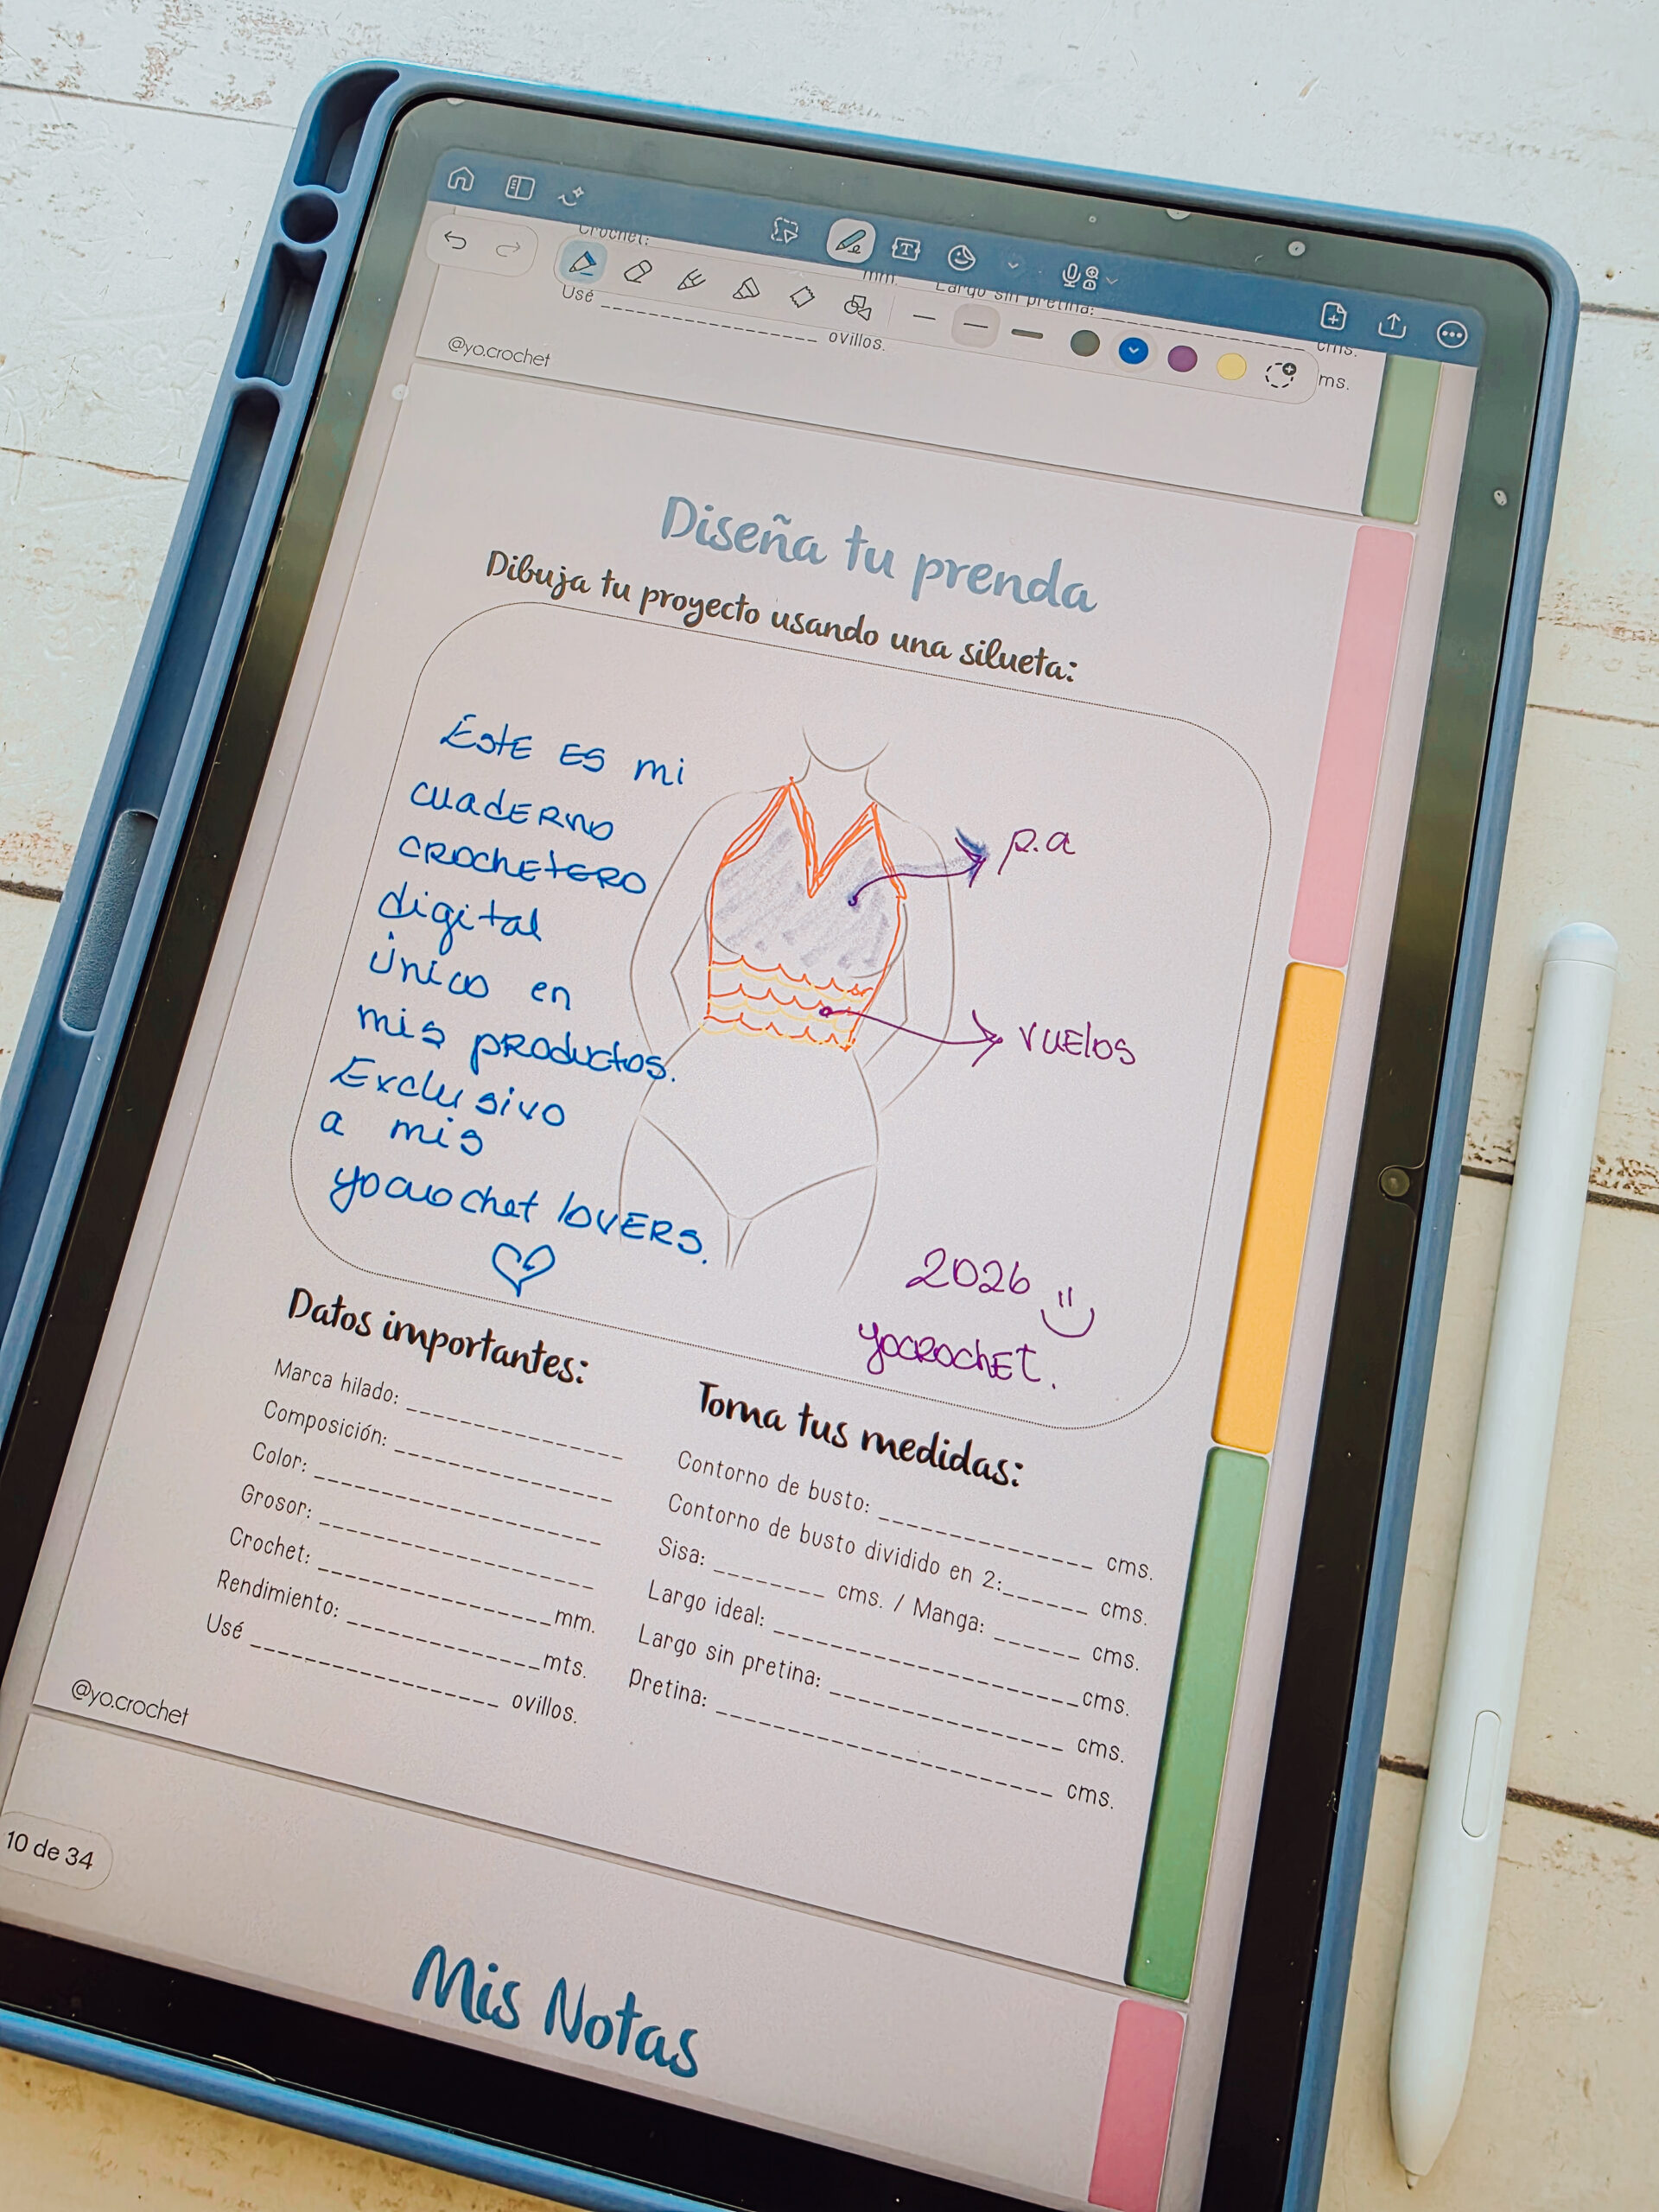 Crochet:
mm.
Largo sin pretina:
cms.
Usé ovillos.
ms.
@yo.crochet
Diseña tu prenda
Dibuja tu proyecto usando una silueta:
Este ES mi
cuadERNO
CROchEtERO
digital
Único en
mis pRoductos.
Exclusivo
a mis
yocrochet lovERS.
p.a
vuElos
2026
yocRochET.
Datos importantes:
Marca hilado:
Composición:
Color:
Grosor:
Crochet: mm.
Rendimiento: mts.
Usé ovillos.
Toma tus medidas:
Contorno de busto: cms.
Contorno de busto dividido en 2: cms.
Sisa: cms. / Manga: cms.
Largo ideal: cms.
Largo sin pretina: cms.
Pretina: cms.
@yo.crochet
10 de 34
Mis Notas